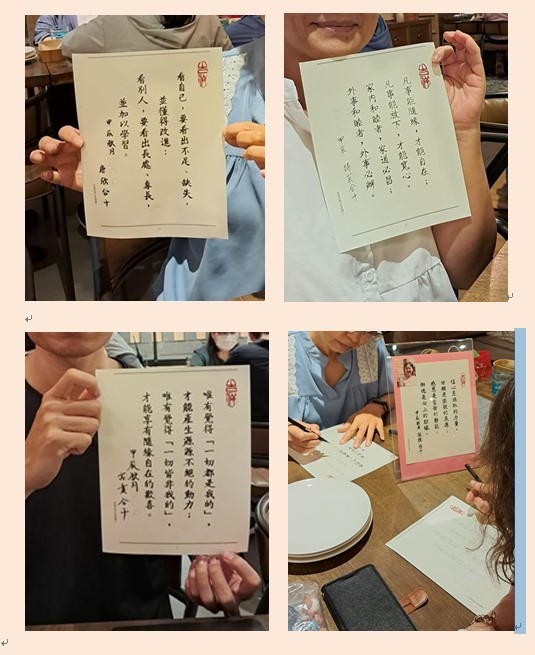 看自己，要看出不足、缺失，
並懂得改進；
看別人，要看出長處、專長，
並加以學習。
甲辰 秋月
合十
凡事能隨緣，才能自在；
凡事能放下，才能寬心。
家內和睦者，家道必昌；
外事和睦者，外事必辦。
甲辰
合十
唯有覺得「一切都是我的」，
才能產生源源不絕的動力；
唯有覺得「一切皆非我的」，
才能享有隨緣自在的歡喜。
甲辰 秋月
合十
信心是進取的力量，